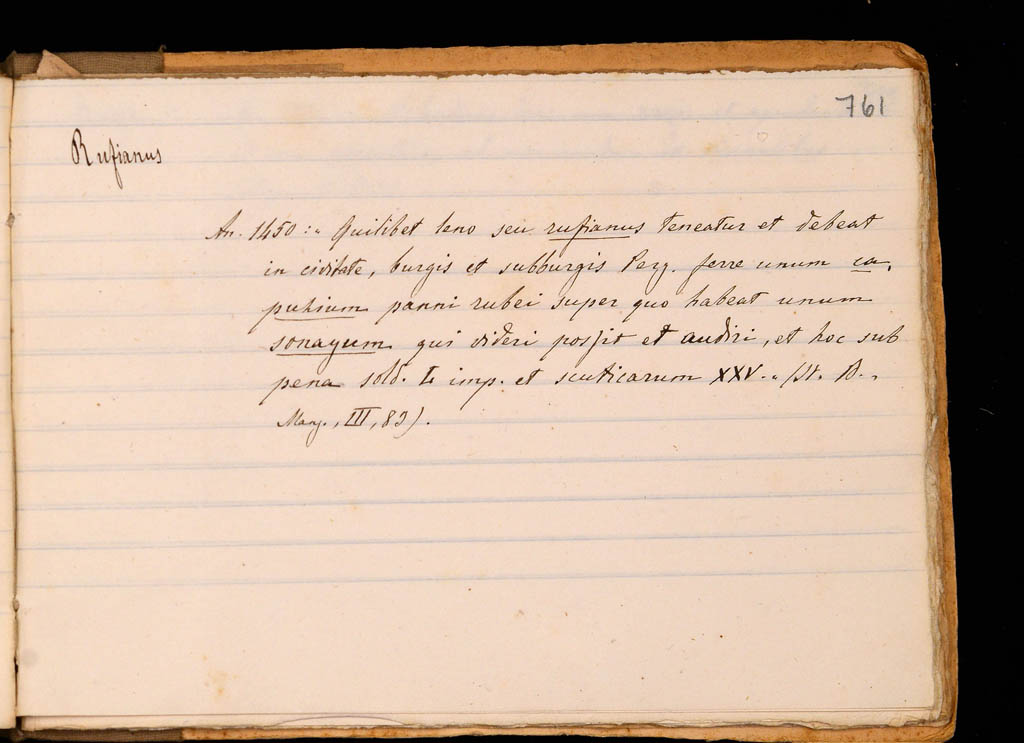 761
Rufianus
An. 1450:" Quilibet leno seu rufianus teneatur et debeat
in civitate, burgis et subburgis Perg. ferre unum ca,
putium panni rubei super quo habeat unum
sonayum qui videri possit et audiri, et hoc sub
pena sold. L imp. et scuticarum XXV." (St. B.,
Marg., III, 82).